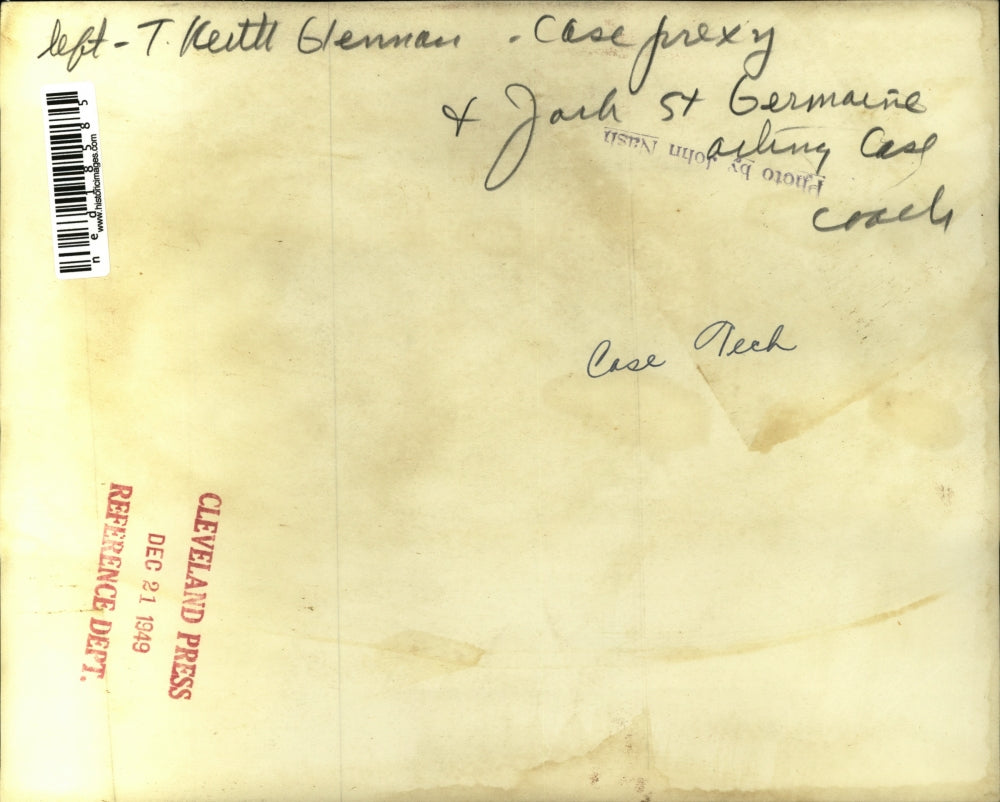 left - T. Keith Glennan - Case prexy
& Jack St Germaine
acting Case
coach
Photo by John Nash
Case Tech
ned18585
www.historicimages.com
CLEVELAND PRESS
DEC 21 1949
REFERENCE DEPT.